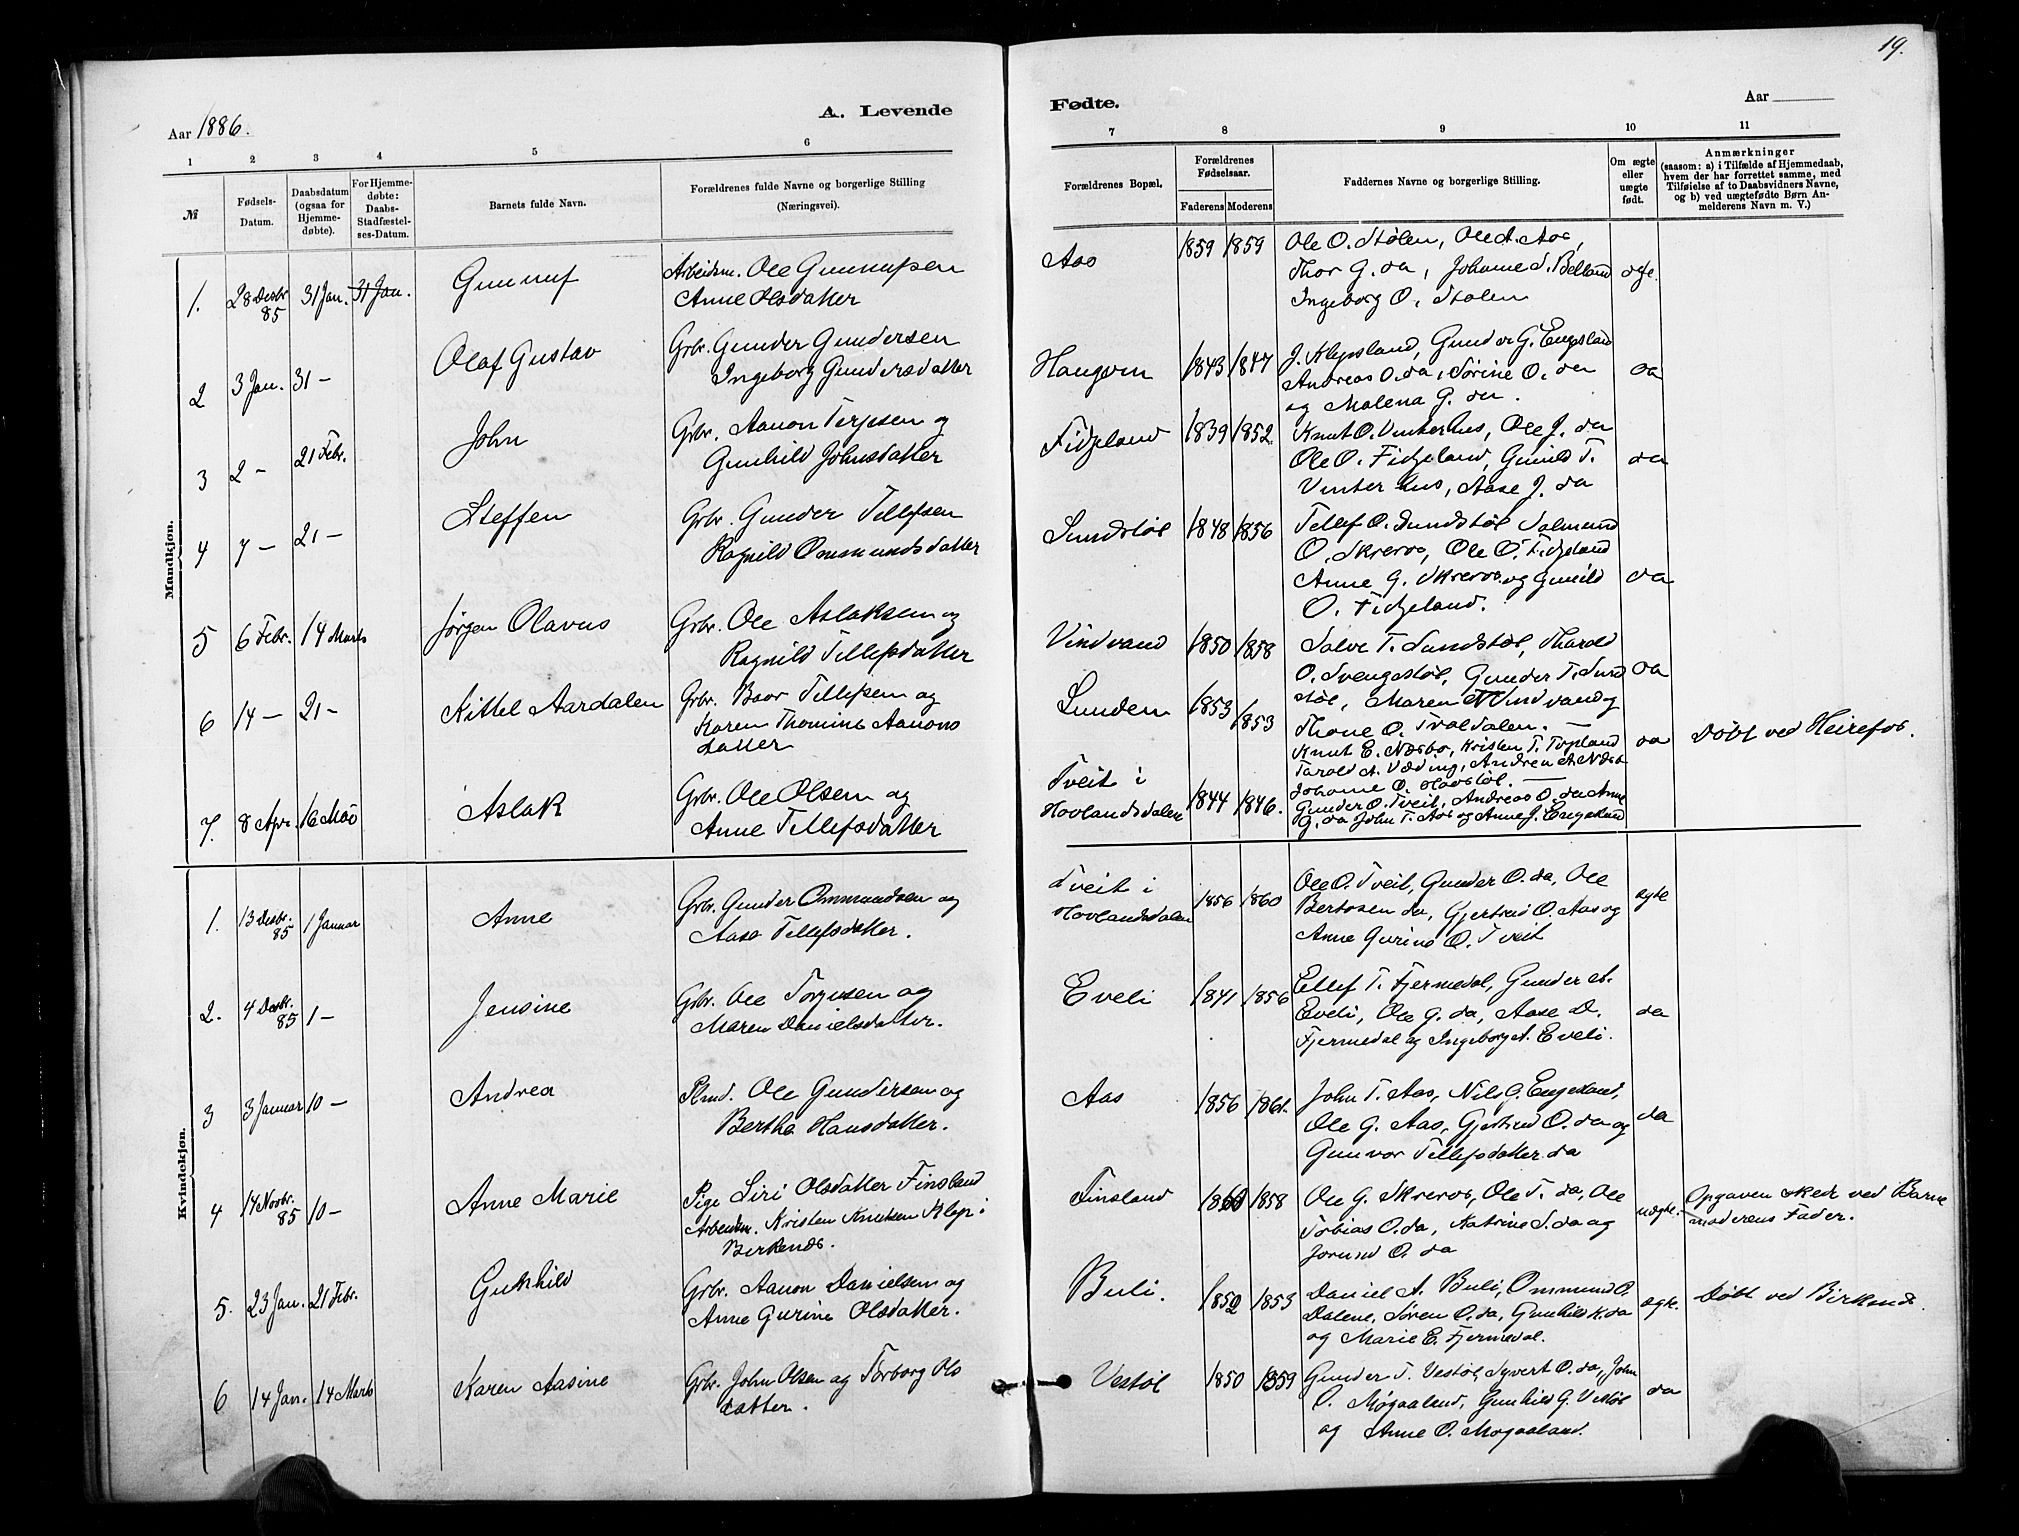 19.
Aar 1886.
A. Levende
Fødte.
Aar
1 2 3 4 5 6 7 8 9 10 11
№
Fødsels-
Datum.
Daabsdatum
(ogsaa for
Hjemme-
døbte).
For Hjemme-
døbte:
Daabs-
Stadfæstel-
ses-Datum.
Barnets fulde Navn.
Forældrenes fulde Navne og borgerlige Stilling
(Næringsvei).
Forældrenes Bopæl.
Forældrenes
Fødselsaar.
Faderens Moderens
Faddernes Navne og borgerlige Stilling.
Om ægte
eller
uægte
født.
Anmærkninger
(saasom: a) i Tilfælde af Hjemmedaab,
hvem der har forrettet samme, med
Tilføielse af to Daabsvidners Navne,
og b) ved uægtefødte Børn An-
melderens Navn m. V.)
Mandkjøn.
1. 28 Desbr. 85 31 Jan. 31 Jan. Gunnuf
Arbeidsm. Ole Gunnufsen
Anne Olsdatter
Aas 1859 1859
Ole O. Stølen, Ole A. Aas,
Thor G. da, Johanne S. Belland
Ingeborg O. Stølen
2 3 Jan. 31 — Olaf Gustav
Grbr. Gunder Gundersen
Ingeborg Gundersdatter
Haugom 1843 1847
J. Klepsland, Gunder G. Engesland
Andreas O. da, Sørine O. da
og Malena G. da.
da
3 2 — 21 Febr. John
Grbr. Aanon Terjesen og
Gunhild Johnsdatter
Fidjeland 1839 1852
Knut O. Vinterhus, Ole J. da
Ole O. Fidjeland, Gunild T.
Vinterhus, Aase J. da
da
4 7 — 21 — Steffen
Grbr. Gunder Tellefsen
Ragnild Omundsdatter
Sundstøl 1848 1856
Tellef O. Sundstøl Salmund
O. Skreros, Ole O. Fidjeland
Anne G. Skreros og Gunild
O. Fidjeland.
da
5 6 Febr. 14 Marts Jørgen Olavus
Grbr. Ole Aslaksen og
Ragnild Tellefsdatter
Vindvand 1850 1858
Salve T. Sundstøl, Tharald
O. Svengestøl, Gunder T. Sund
støl, Maren T. Vindvand og
Thone O. Traldalen. —
da
6 14 — 21 — Kittel Aardalen
Grbr. Baar Tellefsen og
Karen Thomine Aanons
datter
Lunden 1853 1853
Knut E. Næsbø, Kristen T. Topland
Tarald A. Væding, Andrea A. Næsb
Johanne O. Hovstøl. —
da
Døbt ved Heirefos.
7. 8 Apr. 16 Mai Aslak
Grbr. Ole Olsen og
Anne Tellefsdatter
Tveit i
Hovlandsdalen 1844 1846.
Gunder O. Tveit, Andreas O. da Anne
G. da John T. Aas og Anne J. Engesland
Kvindekjøn.
1. 13 Desbr. 85 1 Januar Anne
Grbr. Gunder Ommundsen og
Aase Tellefsdatter.
Tveit i
Hovlandsdalen 1856 1860
Ole O. Tveit, Gunder O. da, Ole
Bertosen da, Gjertrud O. Aas og
Anne Gurine O. Tveit
ægte
2. 4 Desbr. 85 1 — Jensine
Grbr. Ole Torjusen og
Maren Danielsdatter.
Eveli 1841 1856
Ellef T. Fjermedal, Gunder A.
Eveli, Ole G. da, Aase D.
Fjermedal og Ingeborg A. Eveli.
da
3 3 Januar 10 — Andrea
Plmd. Ole Gundersen og
Berthe Hansdatter.
Aas 1856 1861.
John T. Aas, Nils G. Engesland,
Ole G. Aas, Gjertrud O. da og
Gunvor Tellefsdatter da
da
4 14 Novbr. 85 10 — Anne Marie
Pige Siri Olsdatter Finsland
Arbeidm. Kristen Knutsen Klep i
Birkenes.
Finsland 1860 1858
Ole G. Skreros, Ole T. da, Ole
Tobias O. da, Katrine S. da og
Jorund O. da
uægte.
Opgaven skede ved Barne
moderens Fader.
5. 23 Jan. 21 Febr. Gunhild
Grbr. Aanon Danielsen og
Anne Gurine Olsdatter.
Buli. 1852 1853
Daniel A. Buli, Ommund O.
Dalene, Søren O. da, Gunhild K. da
og Marie E. Fjermedal.
ægte.
Døbt ved Birkend.
6 14 Jan. 14 Marts Karen Aasine
Grbr. John Olsen og Torborg Ols
datter.
Vestøl 1850 1859
Gunder T. Vestøl, Syvert O. da, John
O. Møgaaland, Gunhild G. Vestøl
og Anne O. Mogaaland.
da